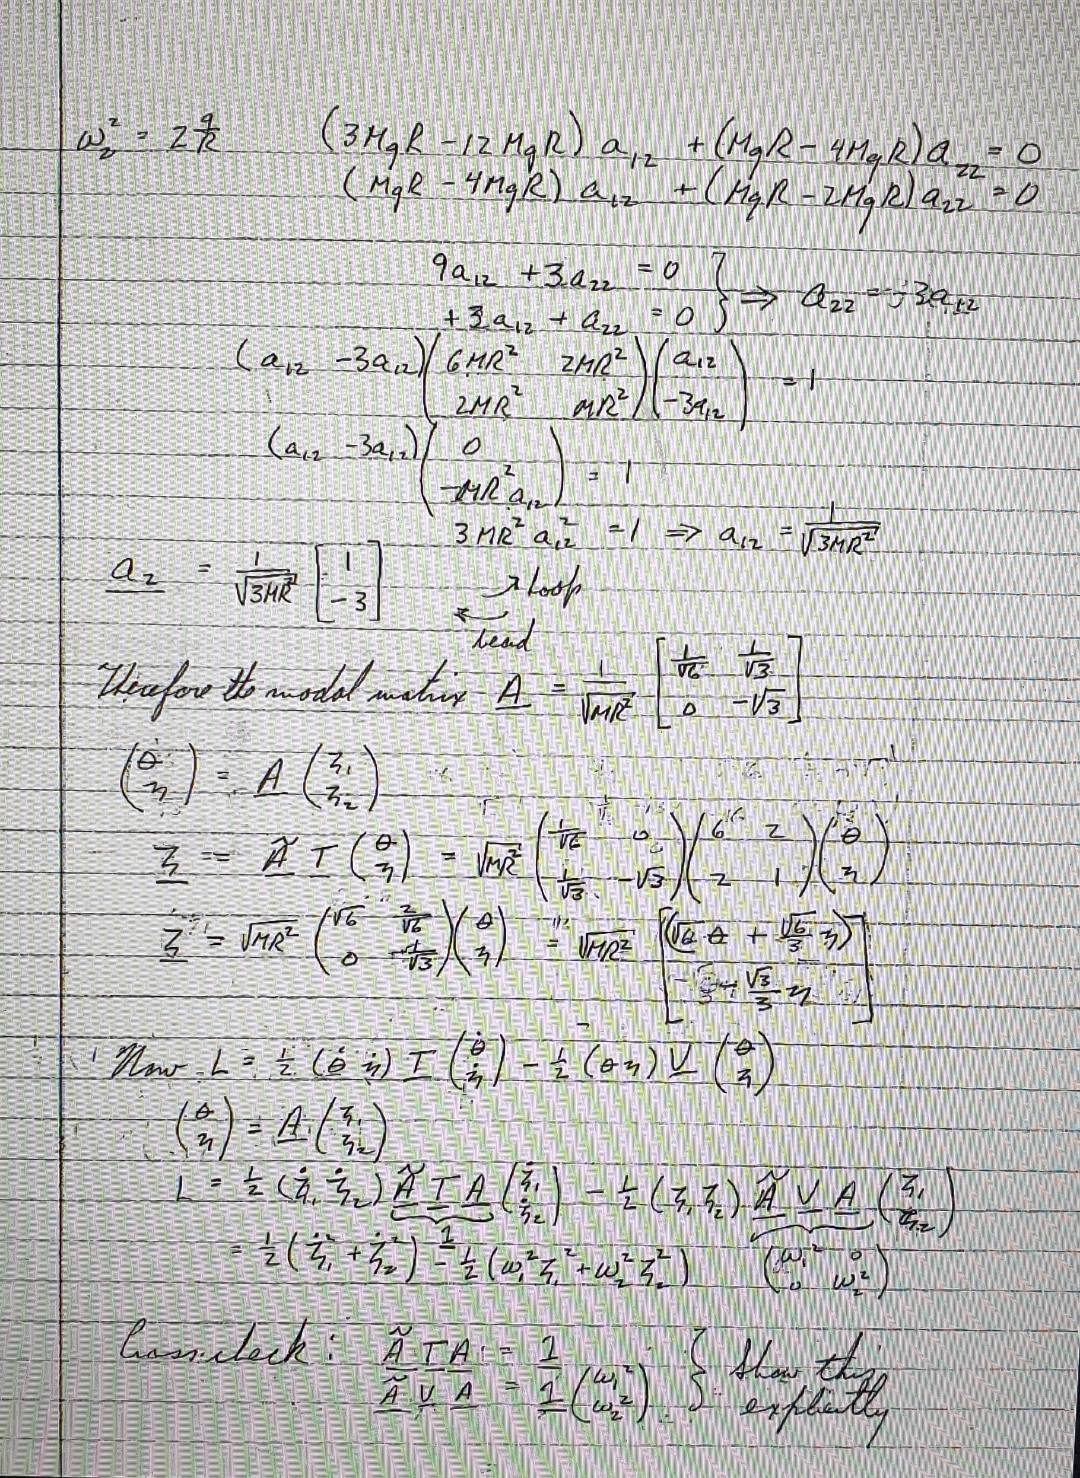 ω₂² = 2 g/R (3MgR - 12MgR) a₁₂ + (MgR - 4MgR) a₂₂ = 0
(MgR - 4MgR) a₁₂ + (MgR - 2MgR) a₂₂ = 0
9a₁₂ + 3a₂₂ = 0
+3a₁₂ + a₂₂ = 0 } ⇒ a₂₂ = -3a₁₂
(a₁₂ -3a₁₂) (6MR² 2MR² ; 2MR² MR²) (a₁₂ ; -3a₁₂) = 1
(a₁₂ -3a₁₂) (0 ; -MR² a₁₂) = 1
3MR² a₁₂² = 1 ⇒ a₁₂ = 1/√(3MR²)
a₂ = 1/√(3MR²) [1 ; -3] → hoop
← bead
Therefore the modal matrix A = 1/√(MR²) [1/√6 1/√3 ; 0 -√3]
(θ ; η) = A (ζ₁ ; ζ₂)
ζ = Ã T (θ ; η) = √(MR²) (1/√6 0 ; 1/√3 -√3) (6 2 ; 2 1) (θ ; η)
ζ = √(MR²) (√6 2/√6 ; 0 -1/√3) (θ ; η) = √(MR²) [(√6 θ + √6/3 η) ; - √3/3 η]
Now L = ½ (θ̇ η̇) T (θ̇ ; η̇) - ½ (θ η) V (θ ; η)
(θ ; η) = A (ζ₁ ; ζ₂)
L = ½ (ζ̇₁ ζ̇₂) Ã T A (ζ̇₁ ; ζ̇₂) - ½ (ζ₁ ζ₂) Ã V A (ζ₁ ; ζ₂)
1
= ½ (ζ̇₁² + ζ̇₂²) - ½ (ω₁² ζ₁² + ω₂² ζ₂²) (ω₁² 0 ; 0 ω₂²)
Cross check : Ã T A = 1
Ã V A = 1 (ω₁² ; ω₂²) } Show this
explicitly